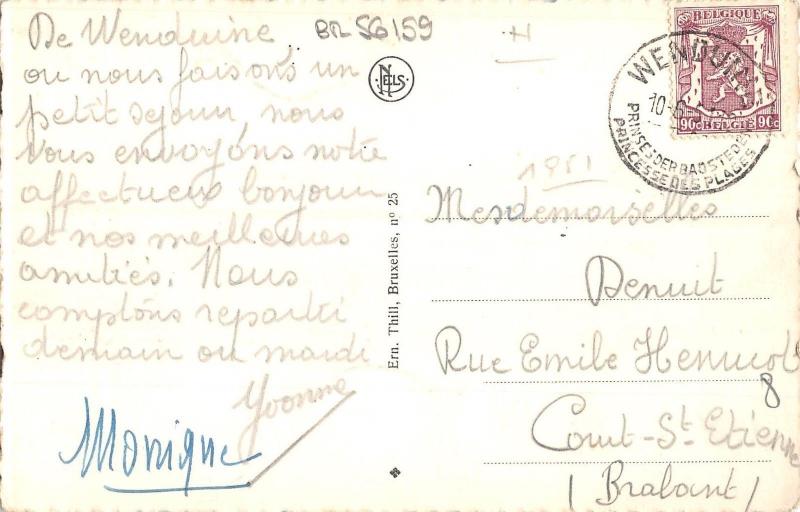 De Wenduine
ou nous faisons un
petit sejour, nous
vous envoyons notre
affectueux bonjour
et nos meilleures
amitiés. Nous
comptons repartir
demain ou mardi
Yvonne
Monique
BR 56159
H
NELS
Ern. Thill, Bruxelles, n° 25
BELGIQUE
90c BELGIE 90c
WENDUINE
10-6
PRINSES DER BADSTEDEN
PRINCESSE DES PLAGES
1951
Mesdemoiselles
Denuit
Rue Emile Henricot
8
Court-St-Etienne
(Brabant)